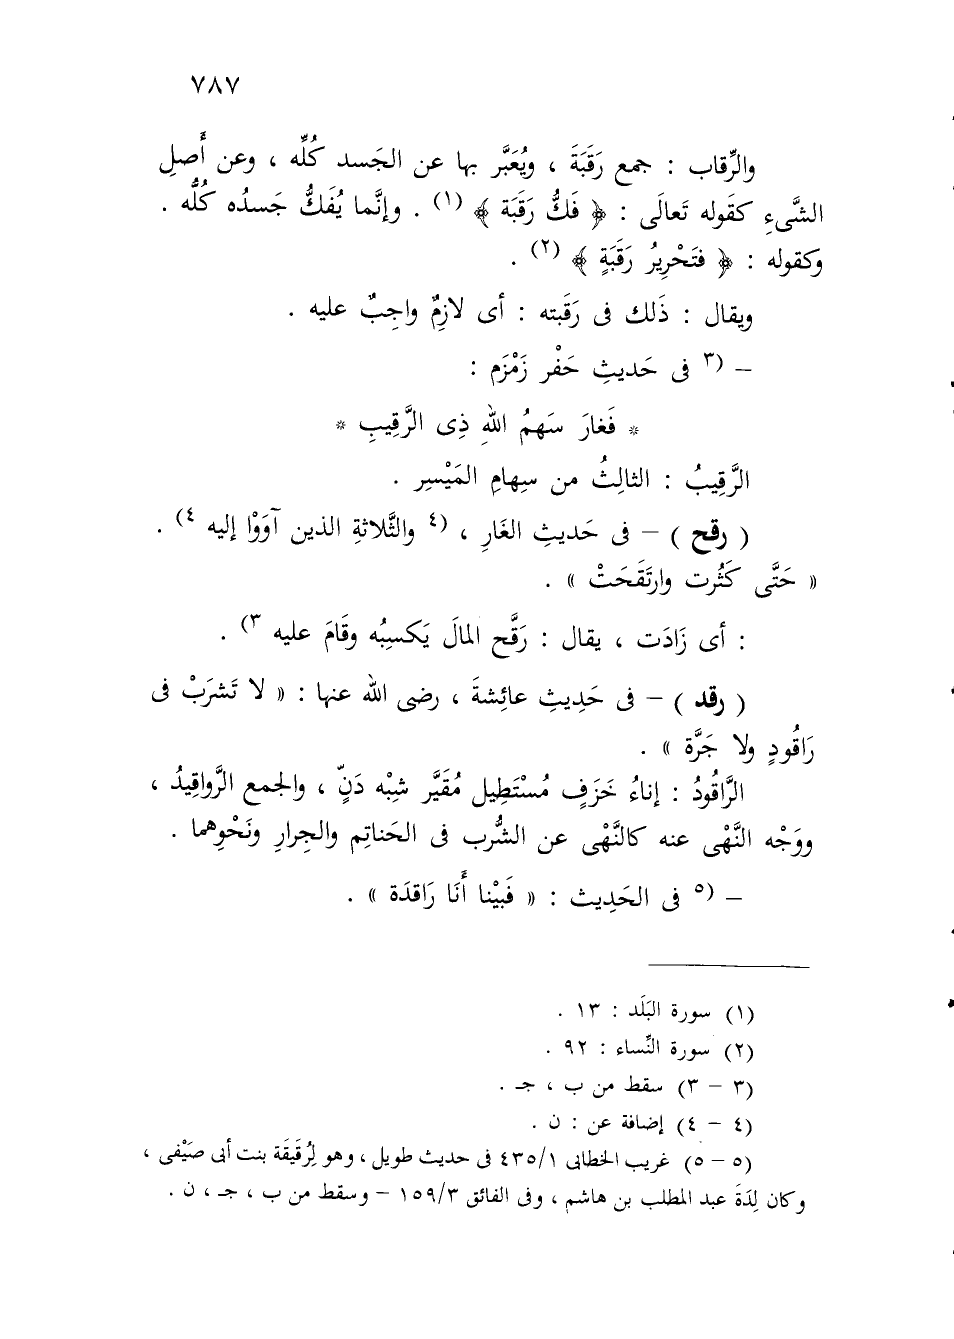 ٧٨٧
والرِّقاب : جمع رَقَبَةَ ، ويُعَبَّر بها عن الجَسد كُلِّه ، وعن أَصلِ
الشَّىءِ كقَوله تَعالَى : ﴿ فَكُّ رَقَبَة ﴾ (١) . وإنَّما يُفَكُّ جَسدُه كُلُّه .
وكقوله : ﴿ فتَحْرِيرُ رَقَبَةٍ ﴾ (٢) .
ويقال : ذَلك فى رَقَبته : أى لازِمٌ واجِبٌ عليه .
– (٣ فى حَديثِ حَفْر زَمْزَم :
* فَغارَ سَهمُ اللهِ ذِى الرَّقِيبِ *
الرَّقِيبُ : الثالِثُ من سِهامِ المَيْسِر .
( رقح ) – فى حَديثِ الغَارِ ، (٤ والثَّلاثةِ الذين آوَوْا إليه ٤) .
« حَتَّى كَثُرت وارتَقَحَتْ » .
: أى زَادَت ، يقال : رَقَّح المالَ يَكسِبُه وقَامَ عليه ٣) .
( رقد ) – فى حَدِيثِ عائِشةَ ، رضى الله عنها : « لا تَشرَبْ فى
رَاقُودٍ ولا جَرَّة » .
الرَّاقُودُ : إناءُ خَزَفٍ مُسْتَطِيل مُقَيَّر شبِْه دَنٍّ ، والجمع الرَّواقِيدُ ،
ووَجْه النَّهْى عنه كالنَّهْى عن الشُّرب فى الحَناتِم والجِرارِ ونَحْوِهما .
– (٥ فى الحَدِيث : « فَبيْنا أَنَا رَاقدَة » .
(١) سورة البَلَد : ١٣ .
(٢) سورة النِّساء : ٩٢ .
(٣ – ٣) سقط من ب ، جـ .
(٤ – ٤) إضافة عن : ن .
(٥ – ٥) غريب الخطابى ٤٣٥/١ فى حديث طويل ، وهو لِرُقَيقَة بنت أبى صَيْفى ،
وكان لِدَةَ عبد المطلب بن هاشم ، وفى الفائق ١٥٩/٣ – وسقط من ب ، جـ ، ن .